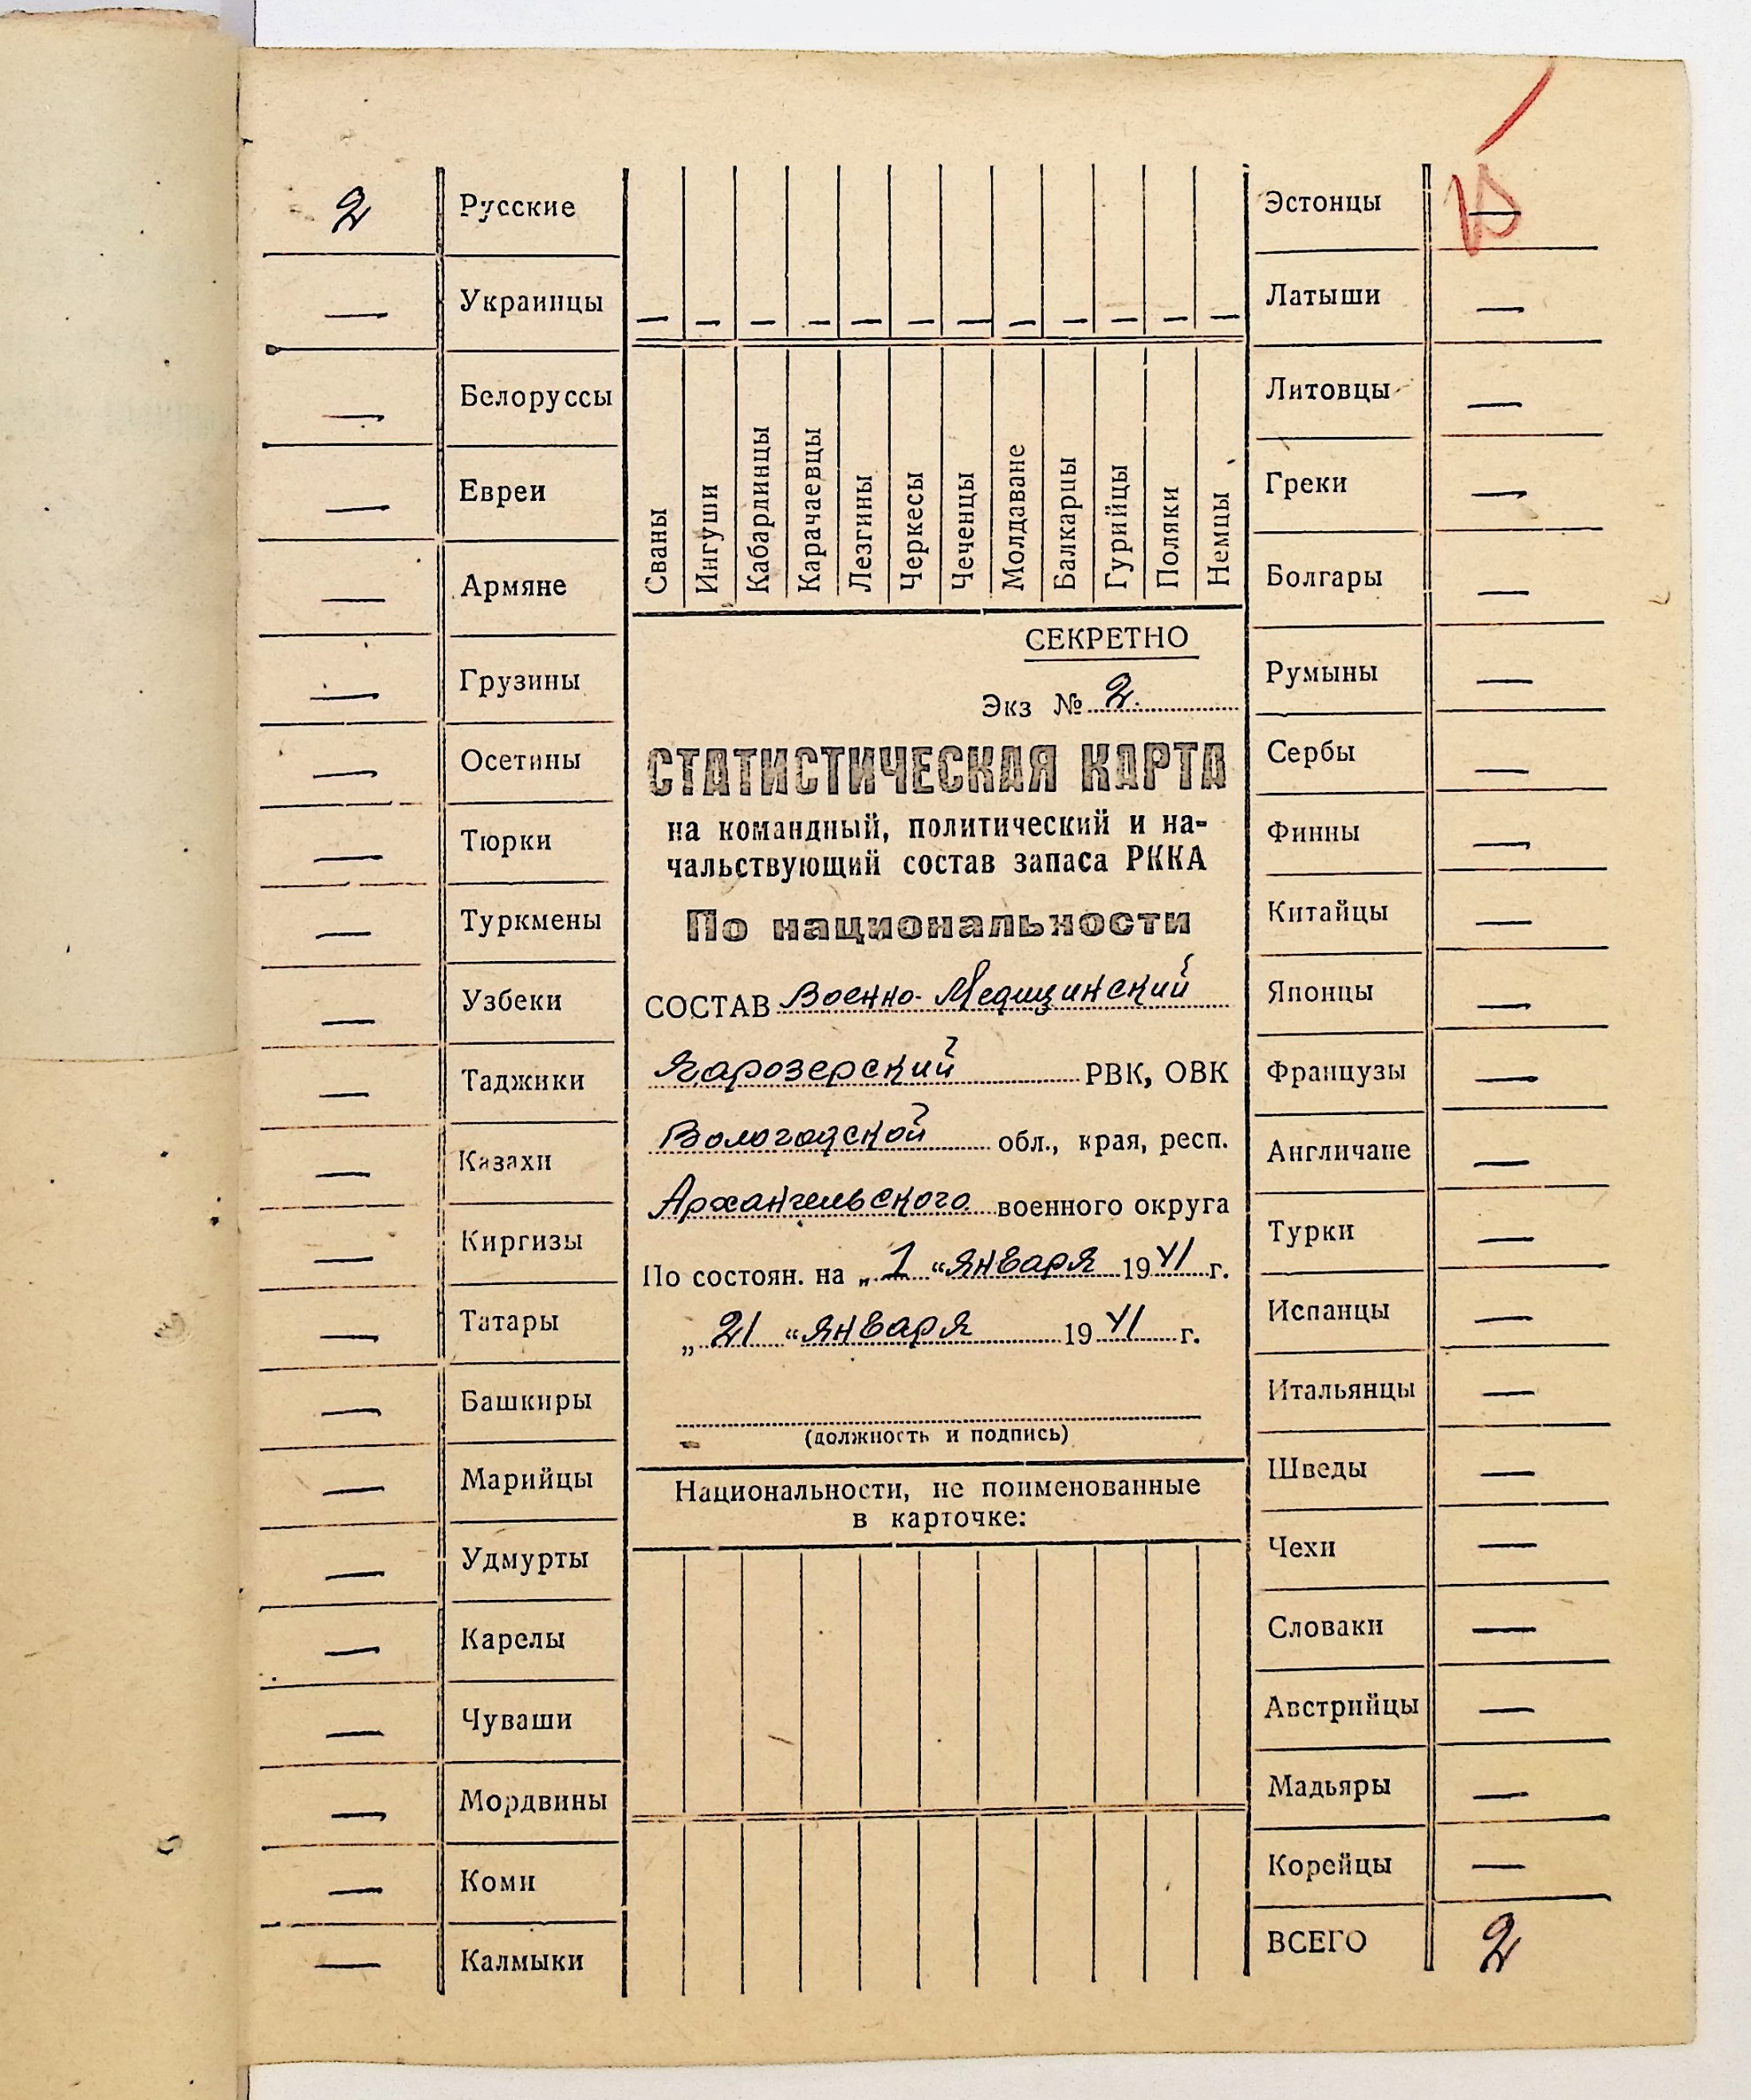 2 Русские
— Украинцы
— Белоруссы
— Евреи
— Армяне
— Грузины
— Осетины
— Тюрки
— Туркмены
— Узбеки
— Таджики
— Казахи
— Киргизы
— Татары
— Башкиры
— Марийцы
— Удмурты
— Карелы
— Чуваши
— Мордвины
— Коми
— Калмыки
— Сваны
— Ингуши
— Кабардинцы
— Карачаевцы
— Лезгины
— Черкесы
— Чеченцы
— Молдаване
— Балкарцы
— Гурийцы
— Поляки
— Немцы
СЕКРЕТНО
Экз № 2.
СТАТИСТИЧЕСКАЯ КАРТА
на командный, политический и на-
чальствующий состав запаса РККА
По национальности
СОСТАВ Военно-Медицинский
Чарозерский РВК, ОВК
Вологодской обл., края, респ.
Архангельского военного округа
По состоян. на „1“ января 1941 г.
„21“ января 1941 г.
(должность и подпись)
Национальности, не поименованные
в карточке:
Эстонцы —
Латыши —
Литовцы —
Греки —
Болгары —
Румыны —
Сербы —
Финны —
Китайцы —
Японцы —
Французы —
Англичане —
Турки —
Испанцы —
Итальянцы —
Шведы —
Чехи —
Словаки —
Австрийцы —
Мадьяры —
Корейцы —
ВСЕГО 2